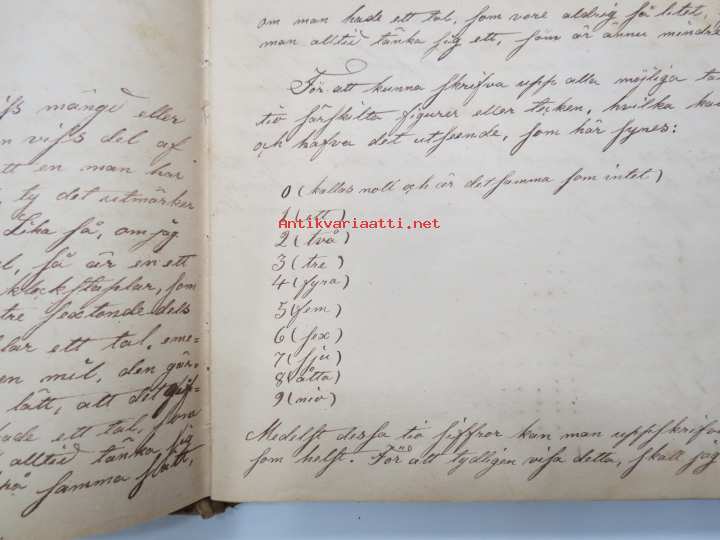 iss mängd eller
n viss del af
tt en man har
, ty det utmärker
Lika så, om jag
l, så är en ett
klockstaplar, som
tre sextonde dels
lar ett tal, eme-
en mil, den går.
lätt, att det gif-
hade ett tal, som
alltid tänka sig
på samma sätt,
om man hade ett tal, som vore aldrig så litet,
man alltid tänka sig ett, som är ännu mindre
För att kunna skrifva upp alla möjliga ta
tio särskilta figurer eller tecken, hvilka
och hafva det utseende, som här synes:
0 (kallas noll och är det samma som intet)
1 (ett)
Antikvariaatti.net
2 (två)
3 (tre)
4 (fyra)
5 (fem)
6 (sex)
7 (sju)
8 (åtta)
9 (nio)
Medelst dessa tio siffror kan man uppskrifva
som helst. För att tydligen visa detta, skall jag